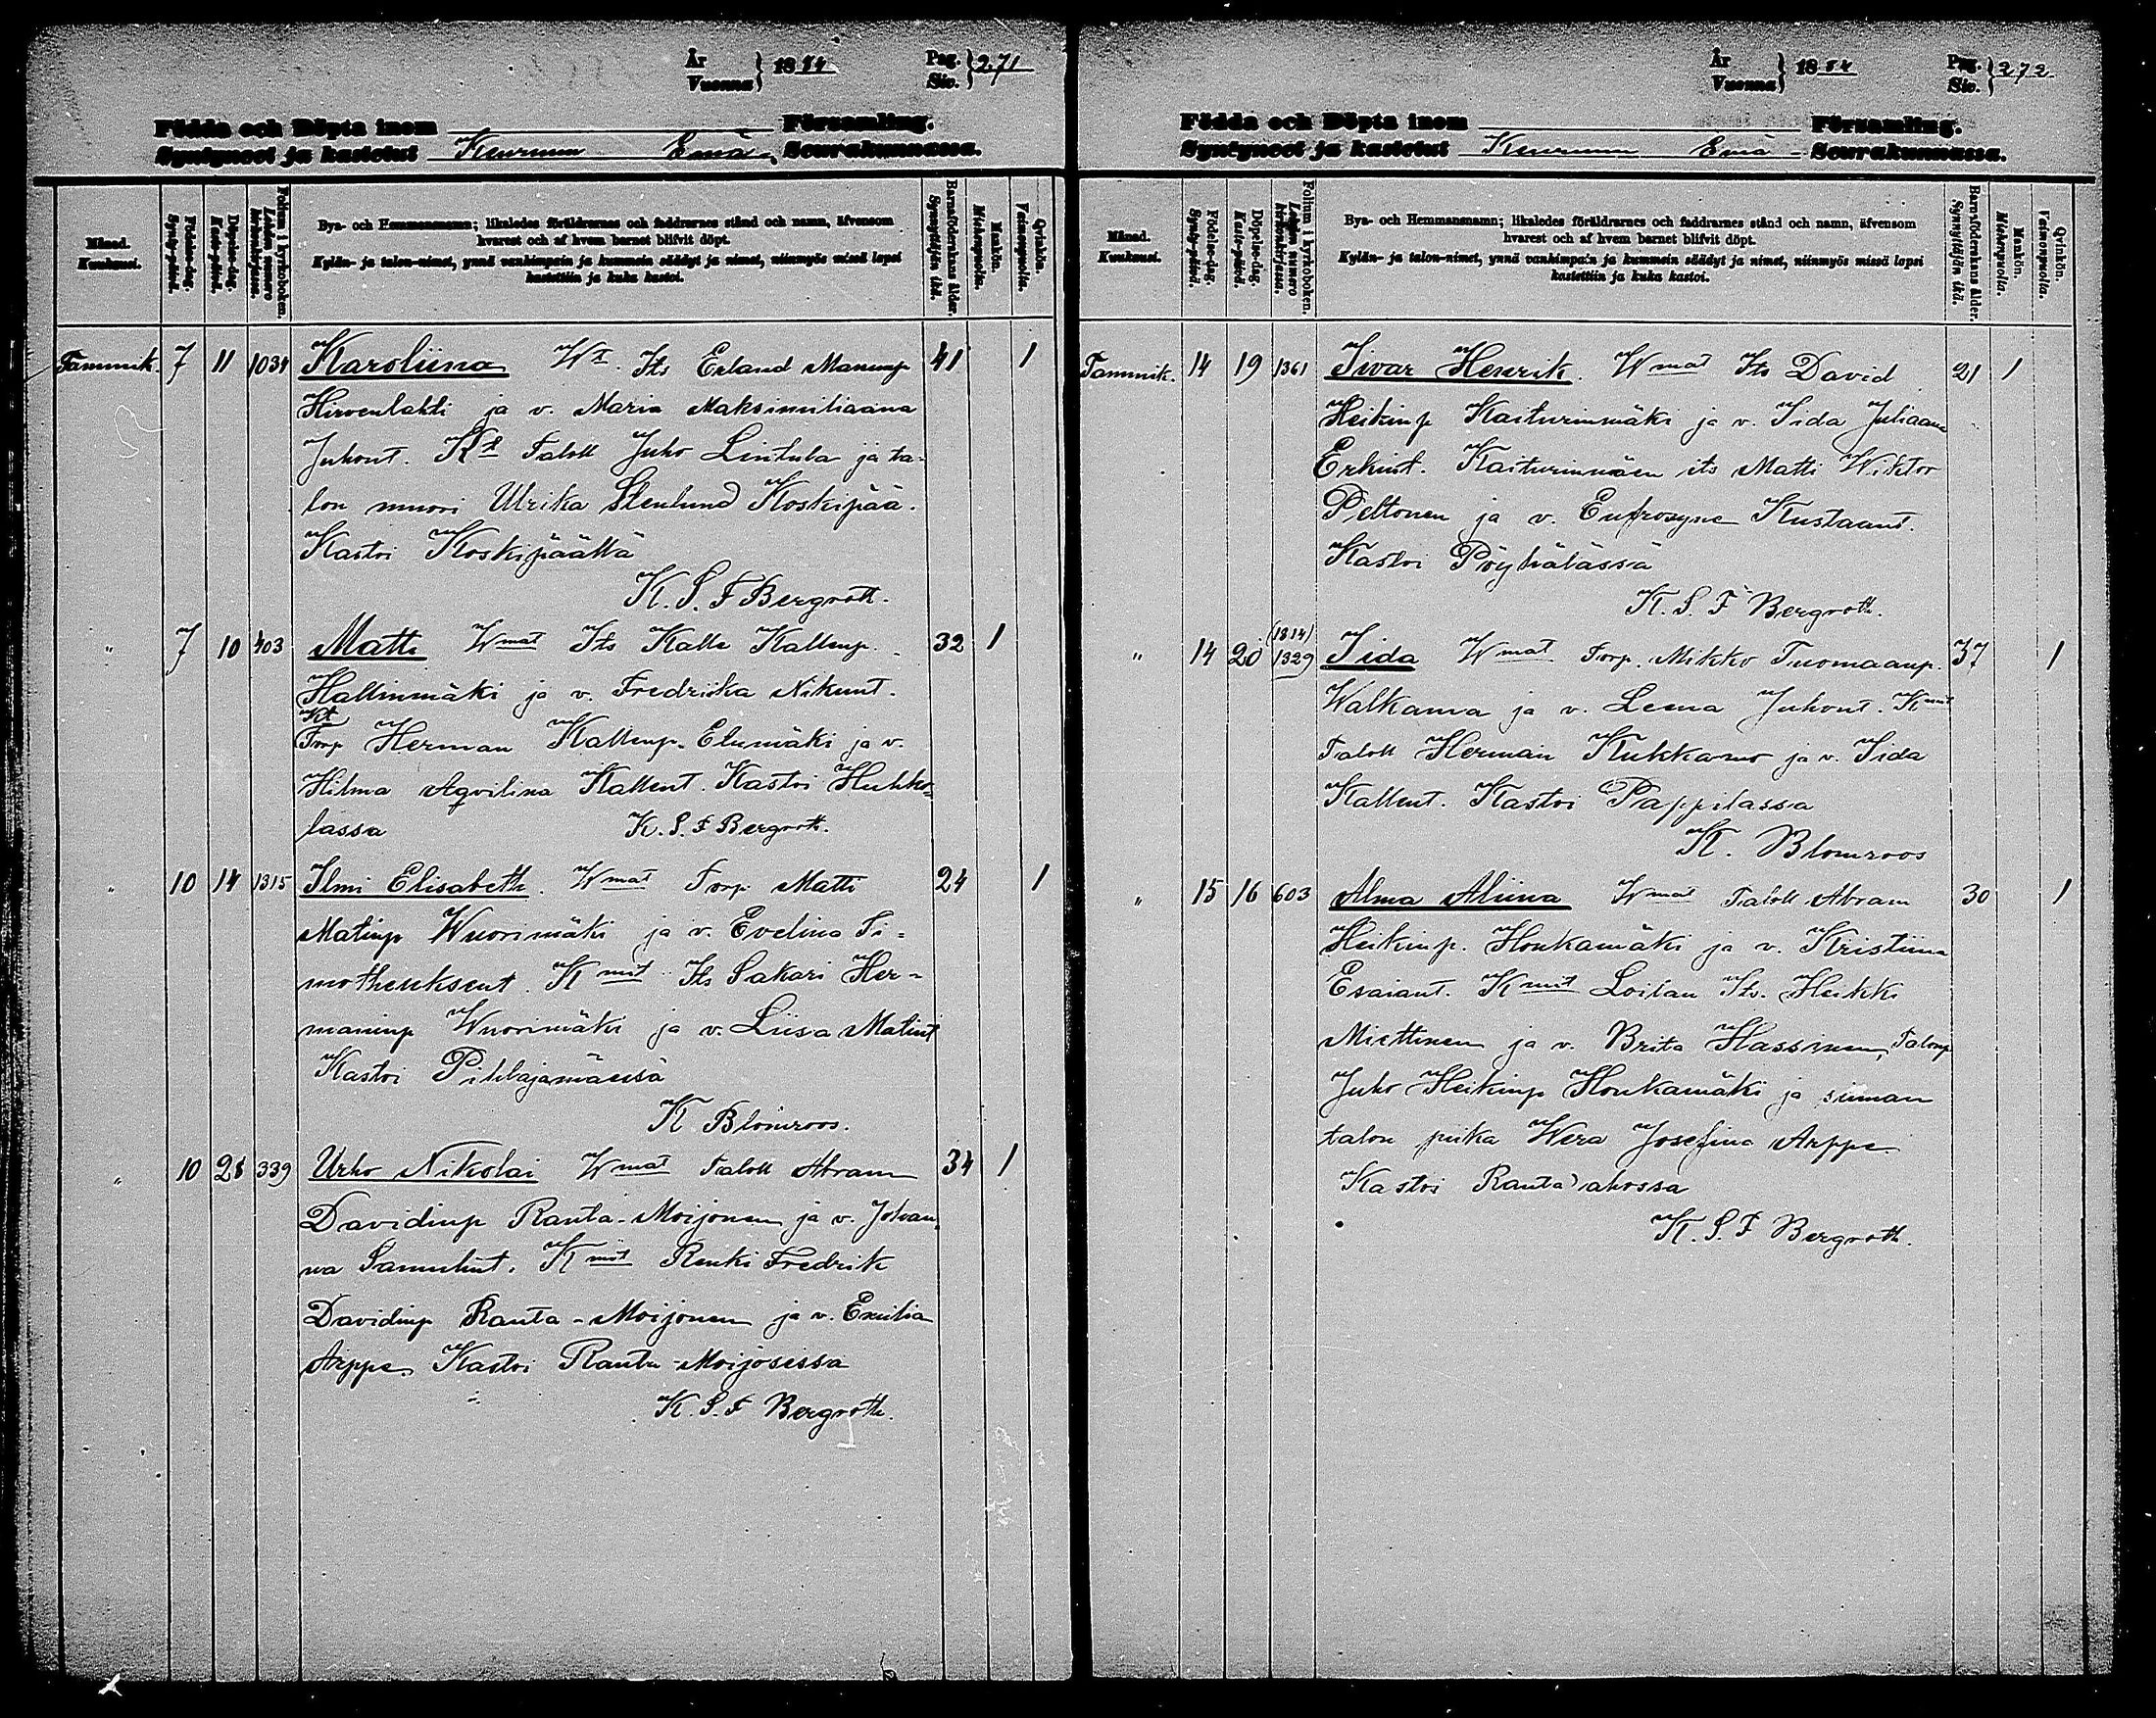 År
Vuonna } 1884 Pag.
Siv. } 271
Födda och Döpta inom Församling.
Syntyneet ja kastetut Keuruun Emä Seurakunnassa.
Månad.
Kuukausi.
Födelse-dag.
Synty-päivä.
Döpelse-dag.
Kaste-päivä.
Folium i kyrkoboken.
Lehden numero kirkonkirjassa.
Bya- och Hemmansnamn; likaledes föräldrarnes och faddrarnes stånd och namn, äfvensom
hvarest och af hvem barnet blifvit döpt.
Kylän- ja talon-nimet, ynnä vanhimpain ja kummein säädyt ja nimet, niinmyös missä lapsi
kastettiin ja kuka kastoi.
Barnaföderskans ålder.
Synnyttäjän ikä.
Mankön.
Miehenpuolia.
Qvinkön.
Vaimonpuolia.
Tammik. 7 11 1034 Karoliina Wt. Its Erland Manunp 41 1
Hirvenlahti ja v. Maria Maksimiliaana
Juhont. Kt Taloll Juho Lintula ja ta-
lon muori Ulrika Stenlund Koskipää.
Kastoi Koskipäällä
K. S. F Bergroth.
" 7 10 403 Matti Wmat Its Kalle Kallenp. 32 1
Hallinmäki ja v. Fredriika Nikunt.
Kt
Torp Herman Kallenp. Elumäki ja v.
Hilma Aqvilina Kallent. Kastoi Huhko-
lassa K. S. F Bergroth.
" 10 14 1315 Ilmi Elisabeth. Wmat Torp Matti 24 1
Matinp Wuorimäki ja v. Evelina Ti=
motheuksent. Kmit Its Sakari Her=
maninp Wuorimäki ja v. Liisa Matint
Kastoi Pihlajamäessä
K Blomroos.
" 10 28 339 Urho Nikolai Wmat Taloll Abram 34 1
Davidinp Ranta-Moijonen ja v. Johan-
na Samulint. Kmit Renki Fredrik
Davidinp Ranta-Moijonen ja v. Emilia
Arppe. Kastoi Ranta-Moijosessa
K. S. F Bergroth.
År
Vuonna } 1884 Pag.
Siv. } 272
Födda och Döpta inom Församling.
Syntyneet ja kastetut Keuruun Emä Seurakunnassa.
Månad.
Kuukausi.
Födelse-dag.
Synty-päivä.
Döpelse-dag.
Kaste-päivä.
Folium i kyrkoboken.
Lehden numero kirkonkirjassa.
Bya- och Hemmansnamn; likaledes föräldrarnes och faddrarnes stånd och namn, äfvensom
hvarest och af hvem barnet blifvit döpt.
Kylän- ja talon-nimet, ynnä vanhimpain ja kummein säädyt ja nimet, niinmyös missä lapsi
kastettiin ja kuka kastoi.
Barnsföderskans ålder.
Synnyttäjän ikä.
Mankön.
Miehenpuolia.
Qvinkön.
Vaimonpuolia.
Tammik. 14 19 1361 Iivar Henrik. Wmat Its David 21 1
Heikinp Kaiturinmäki ja v. Iida Juliaana
Erkint. Kaiturinmäen its Matti Wiktor
Peltonen ja v. Eufrosyne Kustaant.
Kastoi Pöyhälässä
K. S. F Bergroth.
" 14 20 (1314)
1329 Iida Wmat Torp. Mikko Tuomaanp. 37 1
Walkama ja v. Leena Juhont. Kmit
Taloll Herman Kukkamo ja v. Iida
Kallent. Kastoi Pappilassa
K. Blomroos
" 15 16 603 Alma Aliina Wmat Taloll Abram 30 1
Heikinp. Honkamäki ja v. Kristiina
Esaiant. Kmit Loilan Its. Heikki
Miettinen ja v. Brita Hassinen, Talonp
Juho Heikinp Honkamäki ja siiman
talon piika Wera Josefina Arppe.
Kastoi Ranta)ahossa
K. S. F Bergroth.